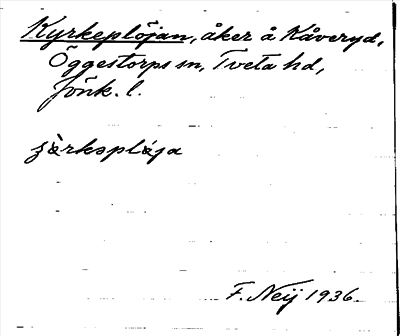 Kyrkeplöjan, åker å Kåveryd,
Öggestorps sn, Tveta hd,
Jönk. l.
F. Neij 1936